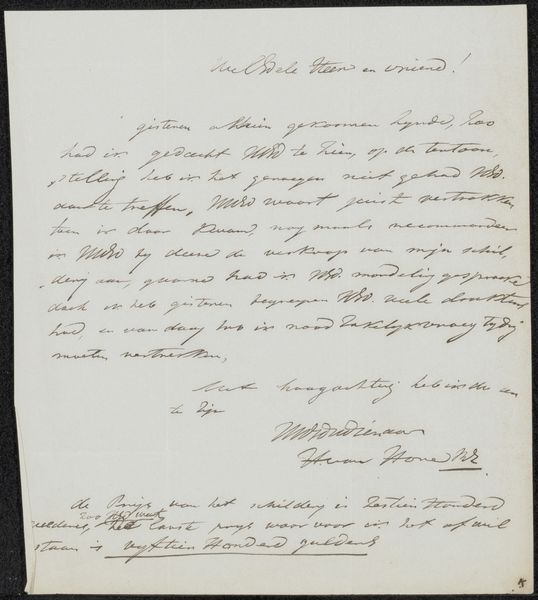 WelEdele Heer en vriend!
gisteren alhier gekoomen zynde, zoo
had ik gedacht UWEd te zien, op de tentoon„
„stelling heb ik het genoegen niet gehad UWEd.
aan te treffen, UWEd waart juist vertrokken
toen ik daar kwam, nogmaals recommandeer
ik UWEd by deese de verkoop van mijn schil„
„dery aan, gaarne had ik UWEd. mondeling gesproken
doch ik heb gisteren begreepen UWEd. veele drukten
had, en van daag heb ik noodzakelijk vroeg tydig
moeten vertrekken,
Met hoogachting heb ik de eer
te zijn
UWEd Dienaar
H van Hove Bz.
de Prijs van het schildery is zestien Honderd
guldens, het laaste prys waar voor ik het af wil
staan is vyftien Honderd guldens